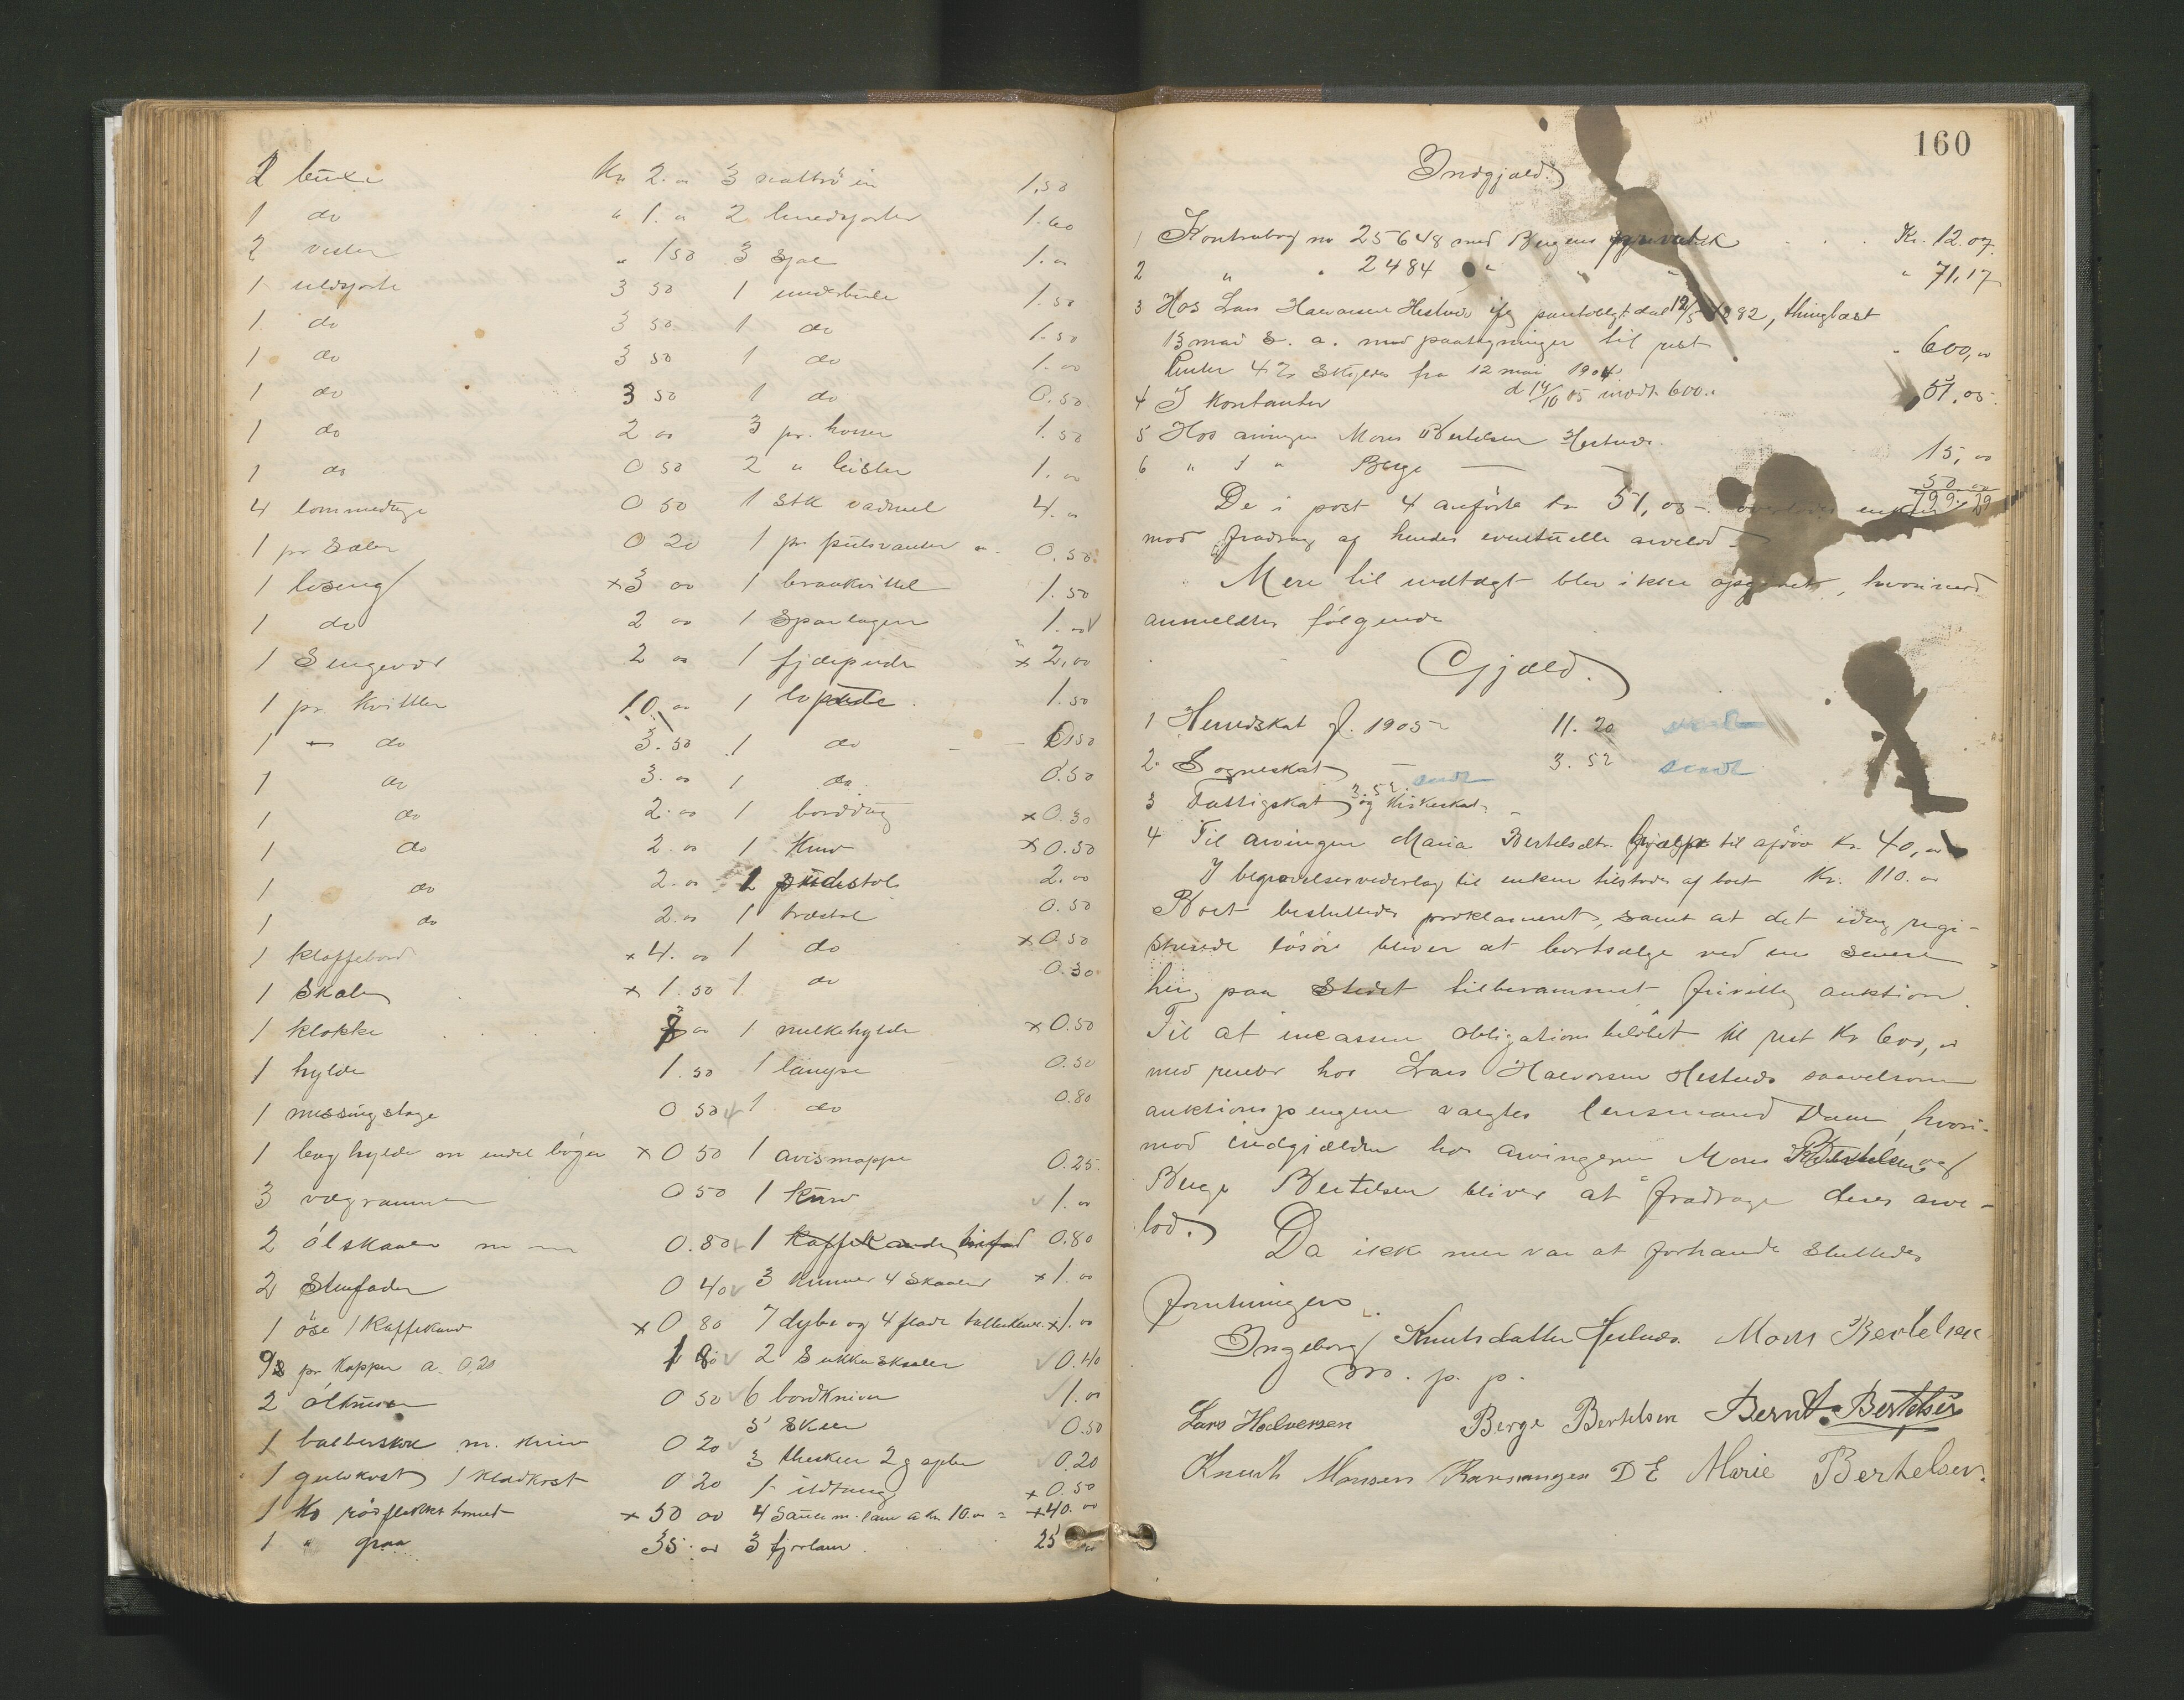 2 buxe Kr 2. "
1 do " 1. "
2 vester " 1 50
1 uldsjorte 3 50
1 do 3 50
1 do 3 50
1 do 3 50
1 do 2 00
1 do 0 50
4 lommedúge 0 50
1 pr Saler 0 20
1 loseng x3 00
1 do 2 00
1 Sengevær 2 00
1 pr. Kvittler 10. 00
1 do 3. 50
1 do 3. 00
1 do 2. 00
1 do 2. 00
1 do 2. 00
1 do 2. 00
1 klaffebord x 4. 00
1 Skab x 1. 50
1 klokke 00
1 hylde 1. 50
1 messingstage 0 50
1 boghylde m endel bøger x 0 50
3 vægrammer 0 50
2 ólskaaler m 0.80
2 Stenfade 0 40
1 óse 1 Kaffekand x 0 80
9 pr Kopper a. 0,20 1 80
2 ólkrúse 0 50
1 balberskre m. kniv 0 20
1 gulvkost 1 Kladkost 0 20
1 Ko rødflekket hornet x 50 00
1 " graa 35. 00
3 nattrøier 1,50
2 linedsjorter 1.60
3 Sjal 1. "
1 underbuxe 1. 50
1 do 1. 50
1 do 1. 00
1 do 0. 50
3 pr. hoser 1. 50
2 " leister 1. 00
1 Stk vadmel 4. "
1 pr púlsvanter 0. 50
1 kvittel 1. 50
1 Sparlagen 1. 00
1 fjærpude x 2,00
1 lopude 1. 50
1 do 50
1 do 0. 50
1 borddúg x 0. 30
1 Kurv x 0. 50
2 púdestol 2. 00
1 træstol 0. 50
1 do x 0. 50
1 do 0. 30
1 melkehylde x 0. 50
1 lampe 0. 50
1 do 0. 80
1 avismappe 0. 25
1 Kurv 1. 00
1 Kaffekande 0. 80
3 Krummer 4 Skaaler x 1. 00
7 dybe og 4 flade tallerkener x 1. 00
2 Sukkerskaaler 0. 40
6 bordkniver 1. 00
5 Skeer 0. 50
3 theskeer 2 gafler 0. 20
1 ildtang x 0. 50
4 Saúer m. lam a kr 10. 00 = x 40. 00
3 fjorlam 25 00
160
Indgjæld.
1 Kontrabog no 25648 med Bergens privatbk Kr. 12.07
2 " " 2484 " " " " 71,17
3 Hos Lars Halvorsen Hestnes ifg pantobligt. dat 12/5 1882, thinglæst
13 mai s. a. med paategninger til rest " 600,00
Renter 4 % Skyldes fra 12 mai 1904
4 I kontanter d 14/10 05 modt. 600." 51,05
5 Hos arvingen Mons Bertelsen Hestnes. 15,00
6 " " Berge — 50 00
799. 29
De i post 4 anførte kr 51,05 overlodes enken
mod fradrag af hendes eventuelle arvelod.
Mere til indtægt blev ikke opgivet, hvorimod
anmeldtes følgende
Gjæld.
1 Herredskat f. 1905 11. 20
2. Sogneskat — 3. 52 sendt
3.52 sendt
3 Fattigskat og Kirkeskat
4 Til arvingen Maria Bertelsdtr. hjælp til Kr. 40,00
I begravelsesvederlag til enken tilstodes af boet Kr. 110. 00
Boet besluttedes proklameret, samt at det idag regi-
strerede løsøre bliver at bortsælge ved en senere
her paa Stedet tilberammet frivillig auktion.
Til at incassere obligationsbeløbet til rest Kr 600,00
med renter hos Lars Halvorsen Hestnes saavelsom
auktionspengene valgtes lensmand Daae, hvori-
mod indgjælden hos arvingerne Mons Bertelsen og
Berge Bertelsen bliver at fradrage deres arve-
lod.
Da ikke mer var at forhandle sluttedes
forretningen.
Ingeborg Knutsdatter Hestnes Mons Bertelsen
m. p. p.
Lars Halvorsen Berge Bertelsen Bernt Bertelsen
Knudt Monsen D E Marie Bertelsen.